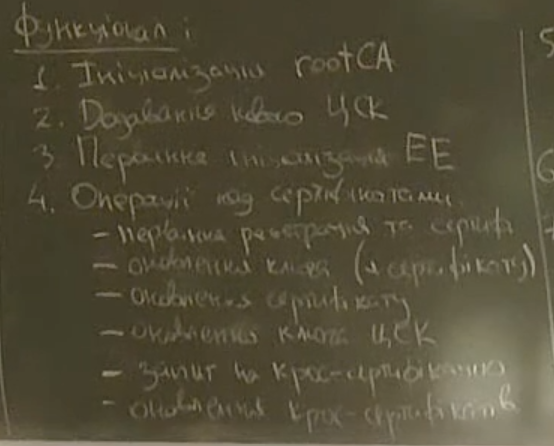 Функціонал:
1. Ініціалізація rootCA
2. Додавання нового ЦСК
3. Первинна ініціалізація EE
4. Операції над сертифікатами
- первинна реєстрація та сертиф
- оновлення ключа (и сертифікату)
- оновлення сертифікату
- оновлення ключа ЦСК
- запит на крос-сертифікацію
- оновлення крос-сертифікатів